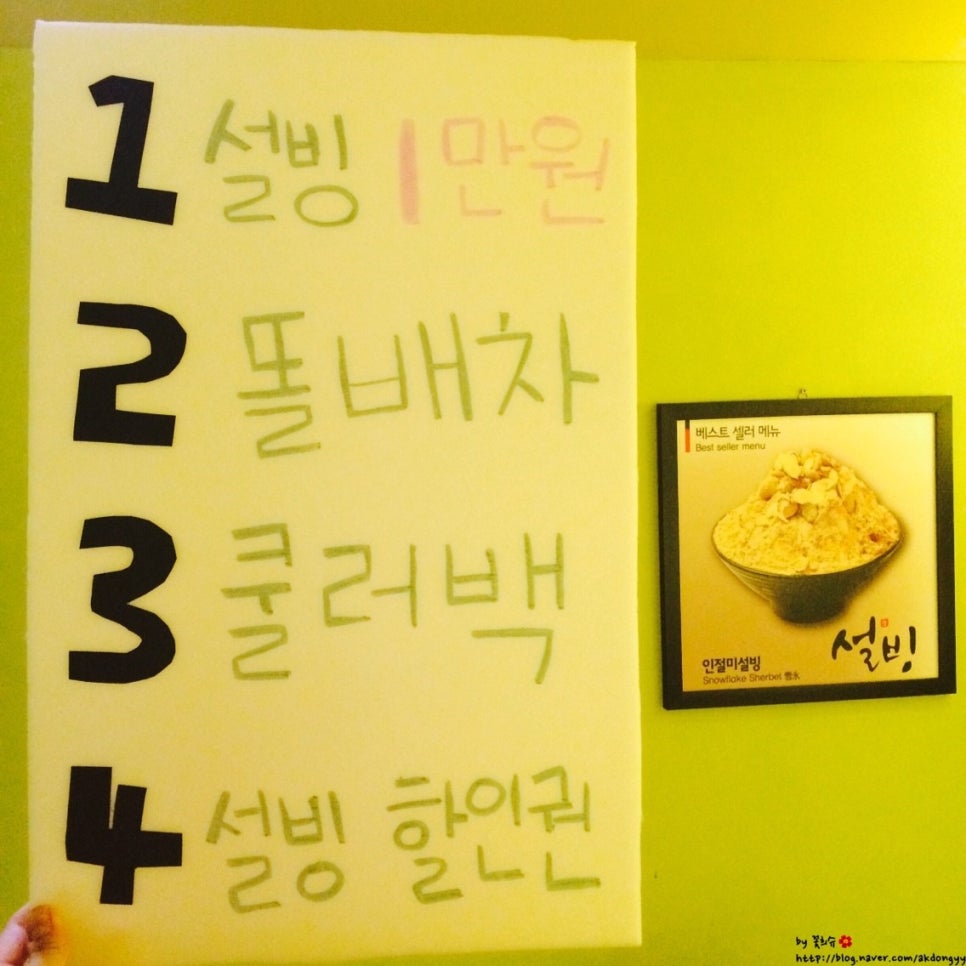 1 설빙 1만원
2 똘배차
3 쿨러백
4 설빙 할인권
베스트 셀러 메뉴
Best seller menu
설빙
인절미설빙
Snowflake Sherbet 雪氷
by 꽃희슈
http://blog.naver.com/akdongyy